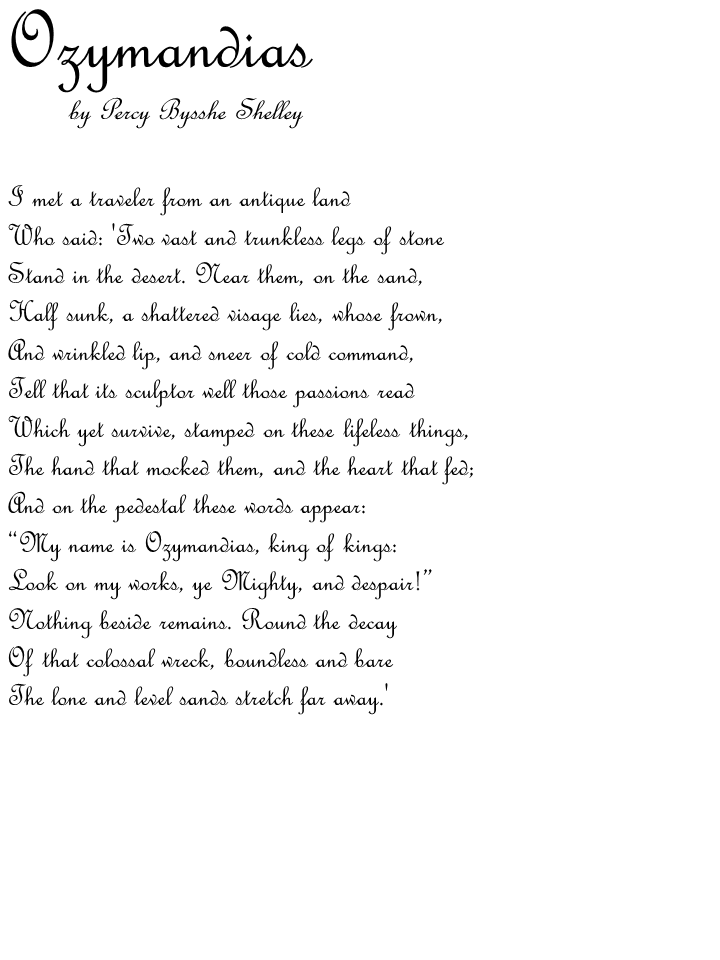 Ozymandias
by Percy Bysshe Shelley
I met a traveler from an antique land
Who said: 'Two vast and trunkless legs of stone
Stand in the desert. Near them, on the sand,
Half sunk, a shattered visage lies, whose frown,
And wrinkled lip, and sneer of cold command,
Tell that its sculptor well those passions read
Which yet survive, stamped on these lifeless things,
The hand that mocked them, and the heart that fed;
And on the pedestal these words appear:
“My name is Ozymandias, king of kings:
Look on my works, ye Mighty, and despair!”
Nothing beside remains. Round the decay
Of that colossal wreck, boundless and bare
The lone and level sands stretch far away.'